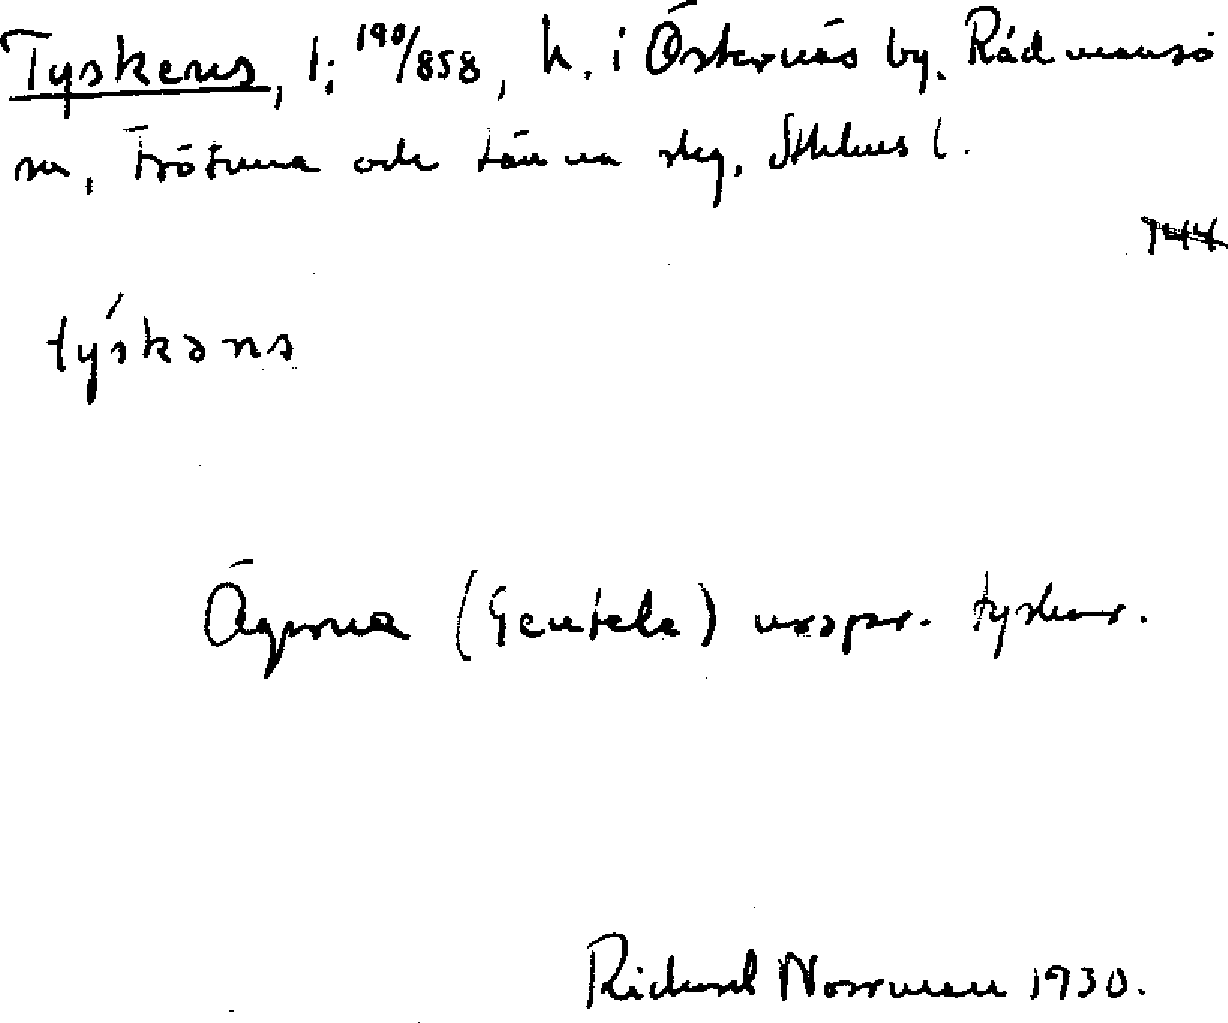 Tyskens, 1; 190/858, h. i Östernäs by. Rådmansö
sn, Frötuna och Länna skg, Sthlms l.
týskəns
Ägarna (Gentele) urspr. tyskar.
Richard Norrman 1930.